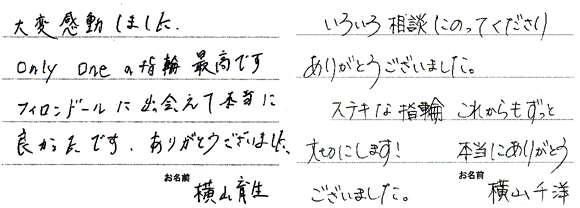 大変感動しました.
only oneの指輪 最高です
フィロンドールに出会えて本当に
良かったです. ありがとうございました.
お名前
横山育生
いろいろ相談にのってくださり
ありがとうございました。
ステキな指輪 これからもずっと
大切にします! 本当にありがとう
お名前
ございました。 横山千洋